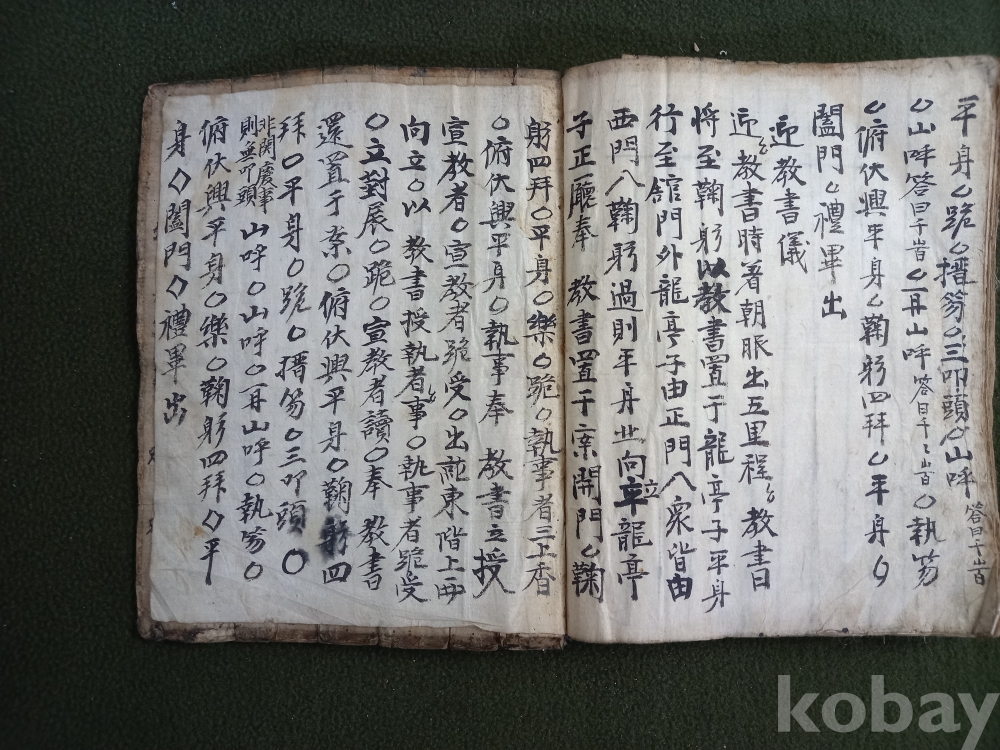 平身○跪○搢笏○三叩頭○山呼答曰千嵗
○山呼答曰千嵗○再山呼答曰千々嵗○執笏
○俯伏興平身○鞠躬四拜○平身○
闔門○禮畢出
迎教書儀
迎教書時着朝服出五里程教書
將至鞠躬以教書置于龍亭子平身
行至舘門外龍亭子由正門入衆皆由
西門入鞠躬過則平身北向立龍亭
子正廳奉 教書置于案開門○鞠
躬四拜○平身○樂○跪○執事者三上香
○俯伏興平身○執事奉 教書立授
宣教者○宣教者跪受○出詣東階上西
向立○以 教書授執者事○執事者跪受
○立對展○跪○宣教者讀○奉 教書
還置于案○俯伏興平身○鞠躬四
拜○平身○跪○搢笏○三叩頭○
非関慶事則無叩頭 山呼○山呼○再山呼○執笏○
俯伏興平身○樂○鞠躬四拜○平
身○闔門○禮畢出
kobay